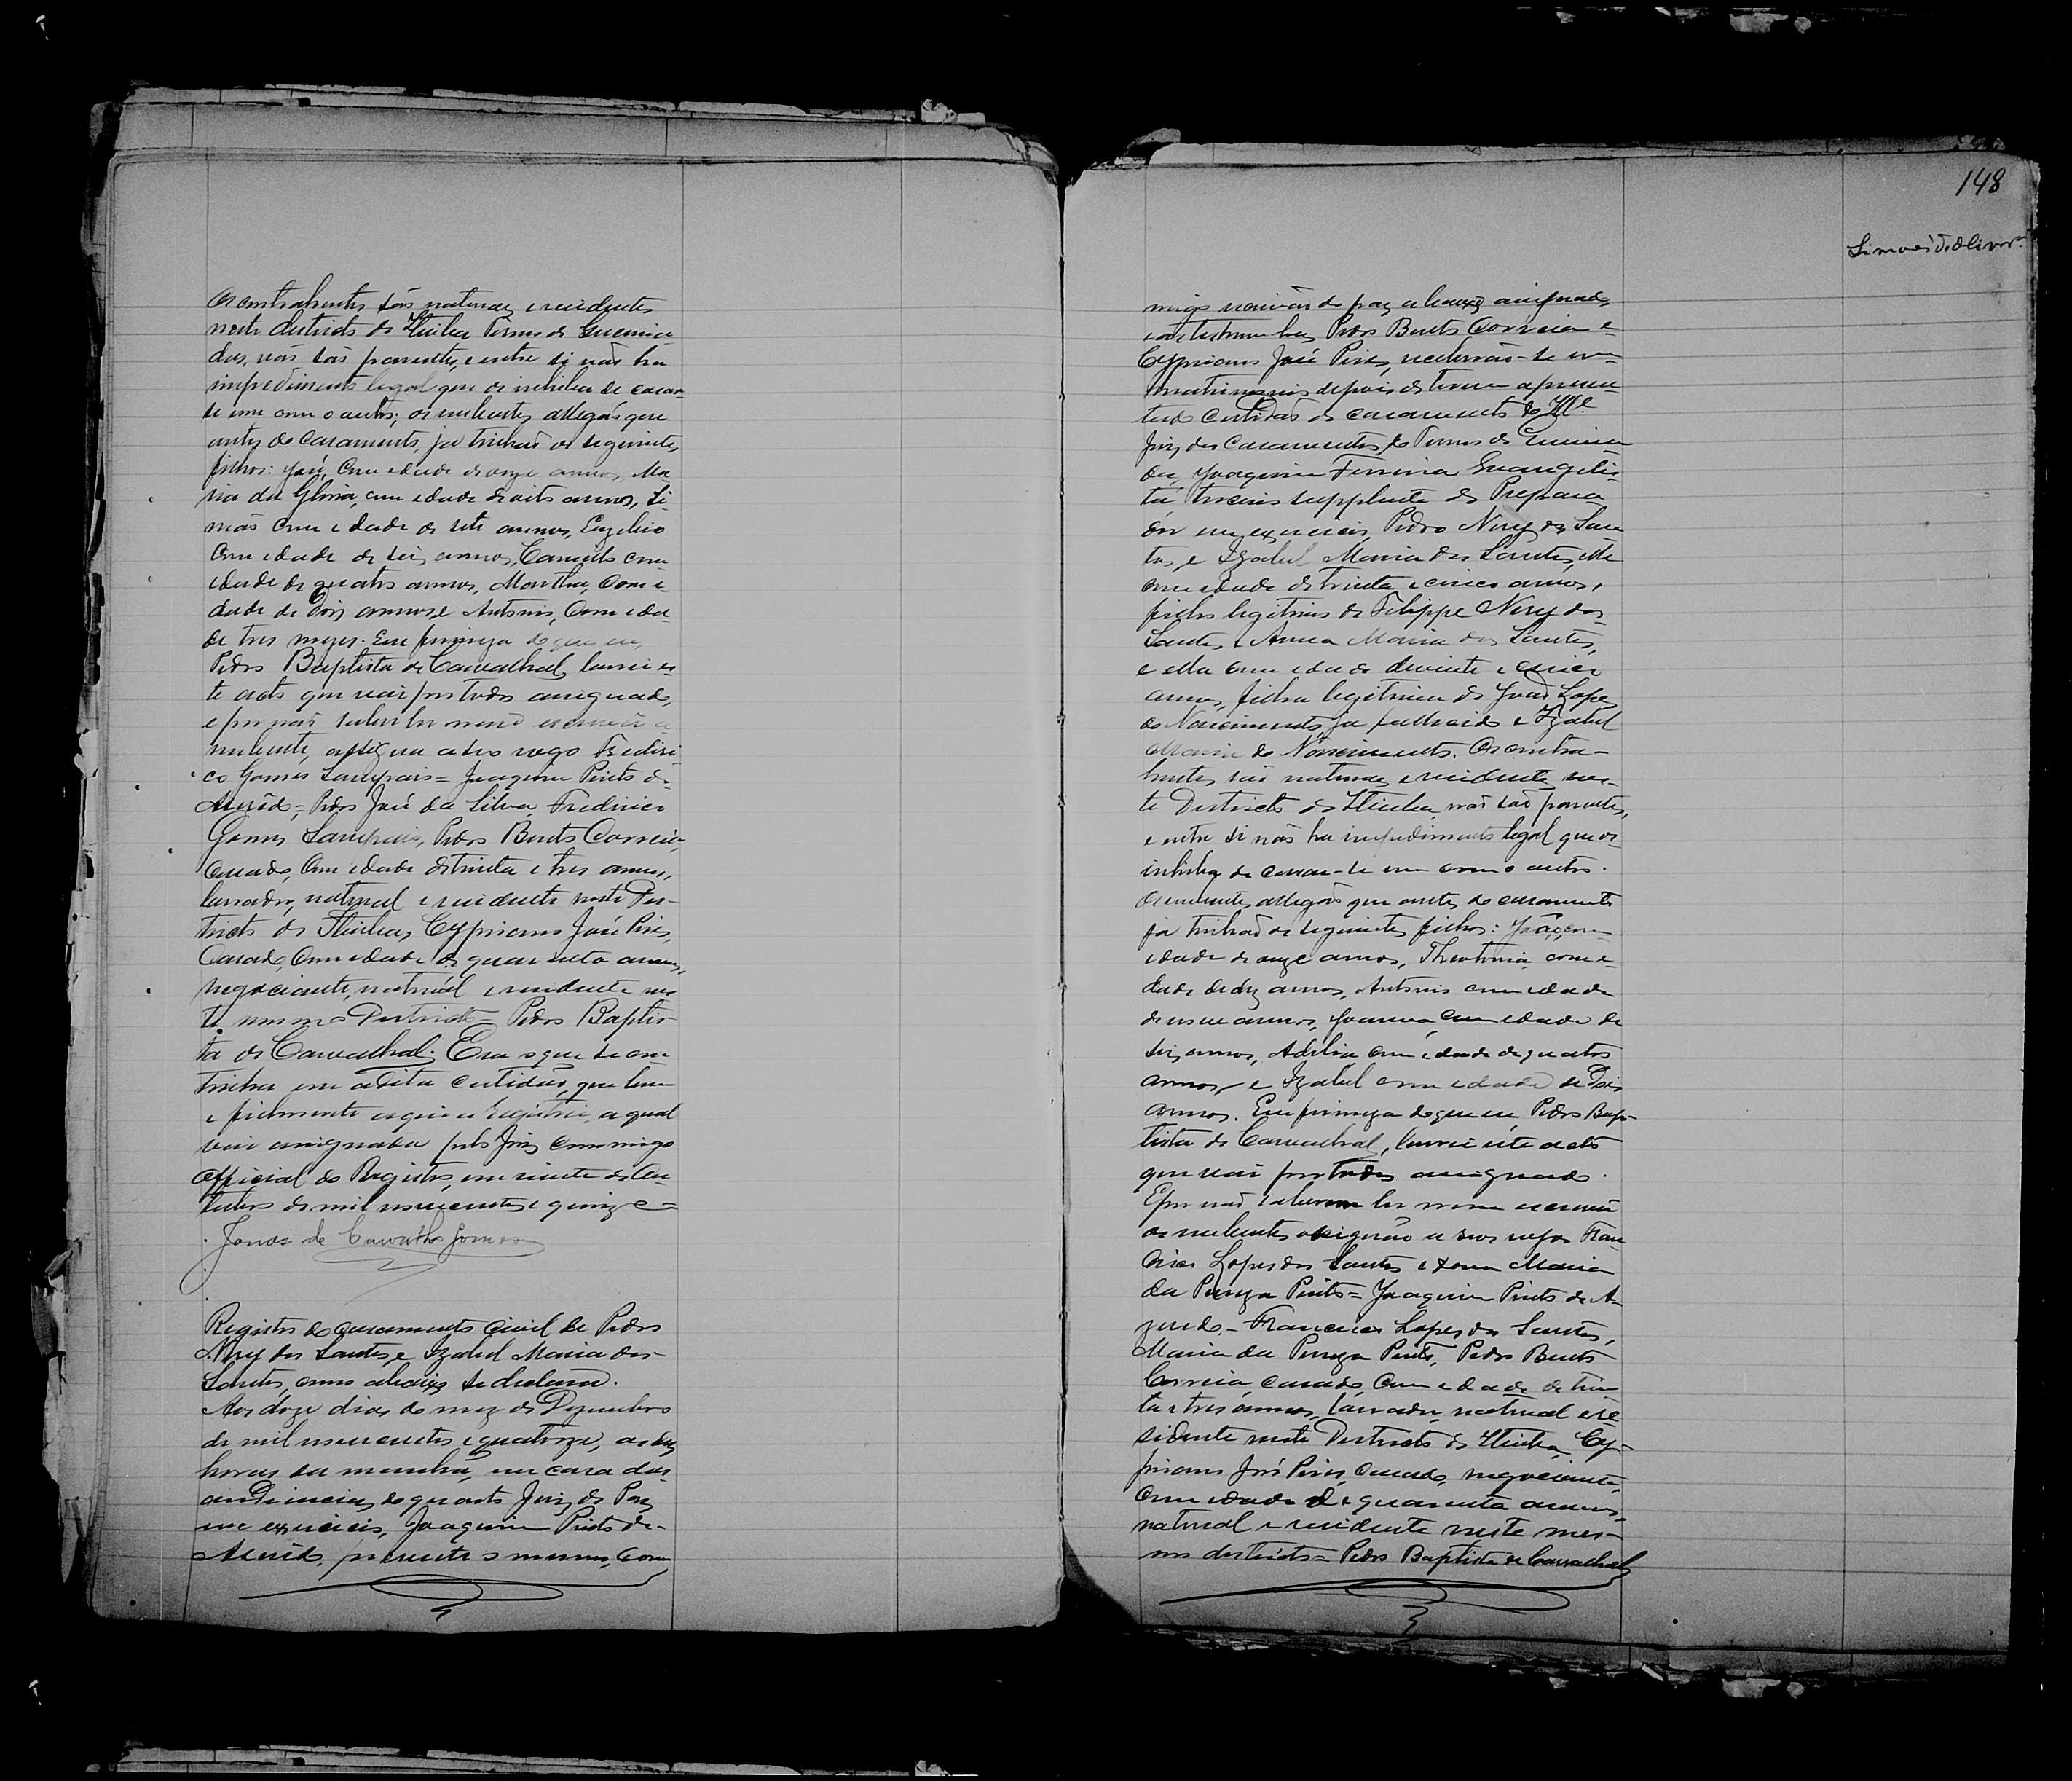 Os contrahentes são naturaes e residentes
neste districto de Itiuba Termo de Queima-
das, não são parentes, e entre si não ha
impedimento legal que os inhiba de casar-
se um com o outro; os nubentes allegão que
antes do casamento, ja tinhaõ os seguintes
filhos: José, com edade de onze annos, Ma-
ria da Gloria, com edade de oito annos, Si-
mão com edade de sete annos,
com edade de seis annos, Camillo com
edade de quatro annos, Martha, com e-
dade de dois annos, e Antonio, com eda-
de tres mezes. Em firmeza do que eu,
Pedro Baptista de Carvalhal, lavrei es-
te acto que vai por todos assignado,
e por não saber ler nem escrever a
nubente, assigna a seo rogo Frederi-
co Gomes Sampaio = Joaquim Pinto de
Azevêdo = Pedro José da Silva, Frederico
Gomes Sampaio, Pedro Bento Correia,
casado, com edade de trinta e tres annos,
lavrador, natural e residente neste Des-
tricto de Itiuba, Cypriano José Pires,
Casado, com edade de quarenta annos,
negociante, natural e residente nes-
te mesmo Districto = Pedro Baptis-
ta de Carvalhal. Era o que se con-
tinha em a dita certidão, que bem
e fielmente aqui a registrei, a qual
vai assignada pelo Juiz commigo
Official do Registro, em vinte de Ou-
tubro de mil novecentos e quinze =
Jonas de Carvalho Gomes
Registro do casamento civil de Pedro
Nery dos Santos, e Izabel Maria dos
Santos, como abaixo se declara.
Aos doze dias do mez de Dezembro
de mil novecentos e quatorze, as dez
horas da manhã, em casa das
audiencias do quarto Juiz de Paz
em exercicio, Joaquim Pinto de
Azevêdo, presente o mesmo, com
148
Simões d'Olivrª
migo escrivão de paz abaixo assignado,
e as testemunhas Pedro Bento Correia e
Cypriano José Pires, receberão-se em
matrimonio depois de terem apresen-
tado certidão de casamento do Illº
Juiz dos Casamentos do Termo de Queima-
das, Joaquim Ferreira Evangelis-
ta, terceiro supplente do Prepara-
dor em exercicio, Pedro Nery dos San-
tos, e Izabel Maria dos Santos, elle
com edade de trinta e cinco annos,
filho legitimo de Felippe Nery dos
Santos, e Anna Maria dos Santos,
e ella com edade de vinte e cinco
annos, filha legitima de João Lopes
do Nascimento, ja fallecido e Izabel
Maria do Nascimento. Os contra-
hentes são naturaes e residentes nes-
te Districto de Itiuba, não são parentes,
e entre si não ha impedimento legal que os
inhiba de casar-se um com o outro.
Os nubentes allegão que antes do casamento
ja tinhaõ os seguintes filhos: João, com
edade de onze annos, Theotonia, com e-
dade de dez annos, Antonio com edade
de nove annos, Joanna, com edade de
seis annos, Adelia com edade de quatro
annos, e Izabel com edade de dois
annos. Em firmeza do que eu, Pedro Bap-
tista de Carvalhal, lavrei este acto
que vai por todos assignado.
E por não saberem ler nem escrever
os nubentes assignão a seos rogos Fran-
cisco Lopes dos Santos e Dona Maria
da Pureza Pinto = Joaquim Pinto de A-
zevedo = Francisco Lopes dos Santos,
Maria da Pureza Pinto, Pedro Bento
Correia, casado, com edade de trin-
ta e tres annos, lavrador, natural e re-
sidente neste Districto de Itiuba, Cy-
priano José Pires, casado, negociante,
com edade de quarenta annos,
natural e residente neste mes-
mo destricto = Pedro Baptista de Carvalhal